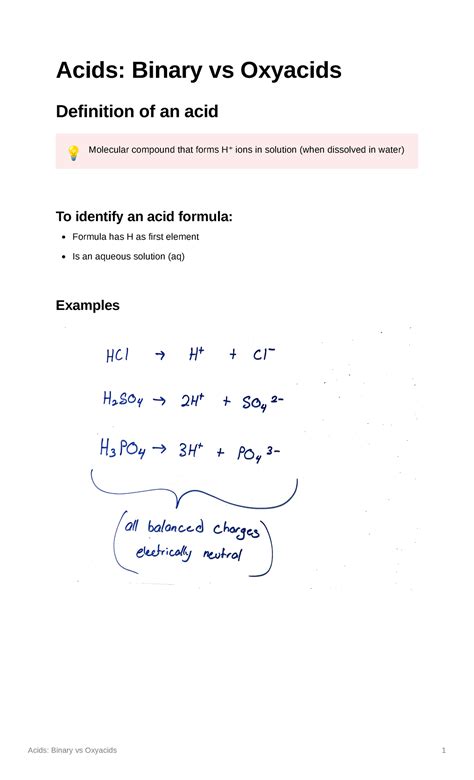 Acids: Binary vs Oxyacids
Definition of an acid
💡 Molecular compound that forms H⁺ ions in solution (when dissolved in water)
To identify an acid formula:
• Formula has H as first element
• Is an aqueous solution (aq)
Examples
HCl → H⁺ + Cl⁻
H₂SO₄ → 2H⁺ + SO₄²⁻
H₃PO₄ → 3H⁺ + PO₄³⁻
(all balanced charges
electrically neutral)
Acids: Binary vs Oxyacids 1